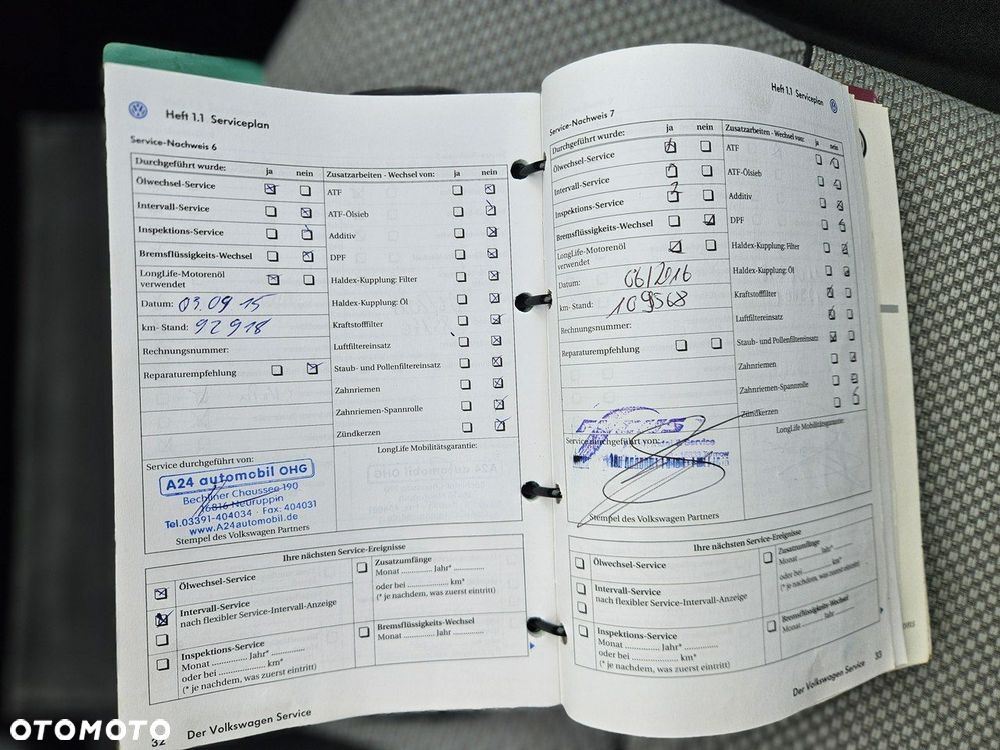 Heft 1.1 Serviceplan
Service-Nachweis 6
Durchgeführt wurde: ja nein
Ölwechsel-Service
Intervall-Service
Inspektions-Service
Bremsflüssigkeits-Wechsel
LongLife-Motorenöl
verwendet
Datum: 03.09 15
km- Stand: 92918
Rechnungsnummer:
Reparaturempfehlung
Zusatzarbeiten - Wechsel von: ja nein
ATF
ATF-Ölsieb
Additiv
DPF
Haldex-Kupplung: Filter
Haldex-Kupplung: Öl
Kraftstofffilter
Luftfiltereinsatz
Staub- und Pollenfiltereinsatz
Zahnriemen
Zahnriemen-Spannrolle
Zündkerzen
Service durchgeführt von:
A24 automobil OHG
Bechliner Chaussee 190
16816 Neuruppin
Tel.03391-404034 · Fax: 404031
www.A24automobil.de
Stempel des Volkswagen Partners
LongLife Mobilitätsgarantie:
Ihre nächsten Service-Ereignisse
Ölwechsel-Service
Intervall-Service
nach flexibler Service-Intervall-Anzeige
Inspektions-Service
Monat ............... Jahr* ...............
oder bei ............... km*
(* je nachdem, was zuerst eintritt)
Zusatzumfänge
Monat ............... Jahr* ...............
oder bei ............... km*
(* je nachdem, was zuerst eintritt)
Bremsflüssigkeits-Wechsel
Monat ............... Jahr ...............
32 Der Volkswagen Service
Heft 1.1 Serviceplan
Service-Nachweis 7
Durchgeführt wurde: ja nein
Ölwechsel-Service
Intervall-Service
Inspektions-Service
Bremsflüssigkeits-Wechsel
LongLife-Motorenöl
verwendet
Datum: 06/2016
km- Stand: 109568
Rechnungsnummer:
Reparaturempfehlung
Zusatzarbeiten - Wechsel von: ja nein
ATF
ATF-Ölsieb
Additiv
DPF
Haldex-Kupplung: Filter
Haldex-Kupplung: Öl
Kraftstofffilter
Luftfiltereinsatz
Staub- und Pollenfiltereinsatz
Zahnriemen
Zahnriemen-Spannrolle
Zündkerzen
Service durchgeführt von:
Stempel des Volkswagen Partners
LongLife Mobilitätsgarantie:
Ihre nächsten Service-Ereignisse
Ölwechsel-Service
Intervall-Service
nach flexibler Service-Intervall-Anzeige
Inspektions-Service
Monat ............... Jahr* ...............
oder bei ............... km*
(* je nachdem, was zuerst eintritt)
Zusatzumfänge
Monat ............... Jahr* ...............
oder bei ............... km*
(* je nachdem, was zuerst eintritt)
Bremsflüssigkeits-Wechsel
Monat ............... Jahr ...............
Der Volkswagen Service 33
OTOMOTO